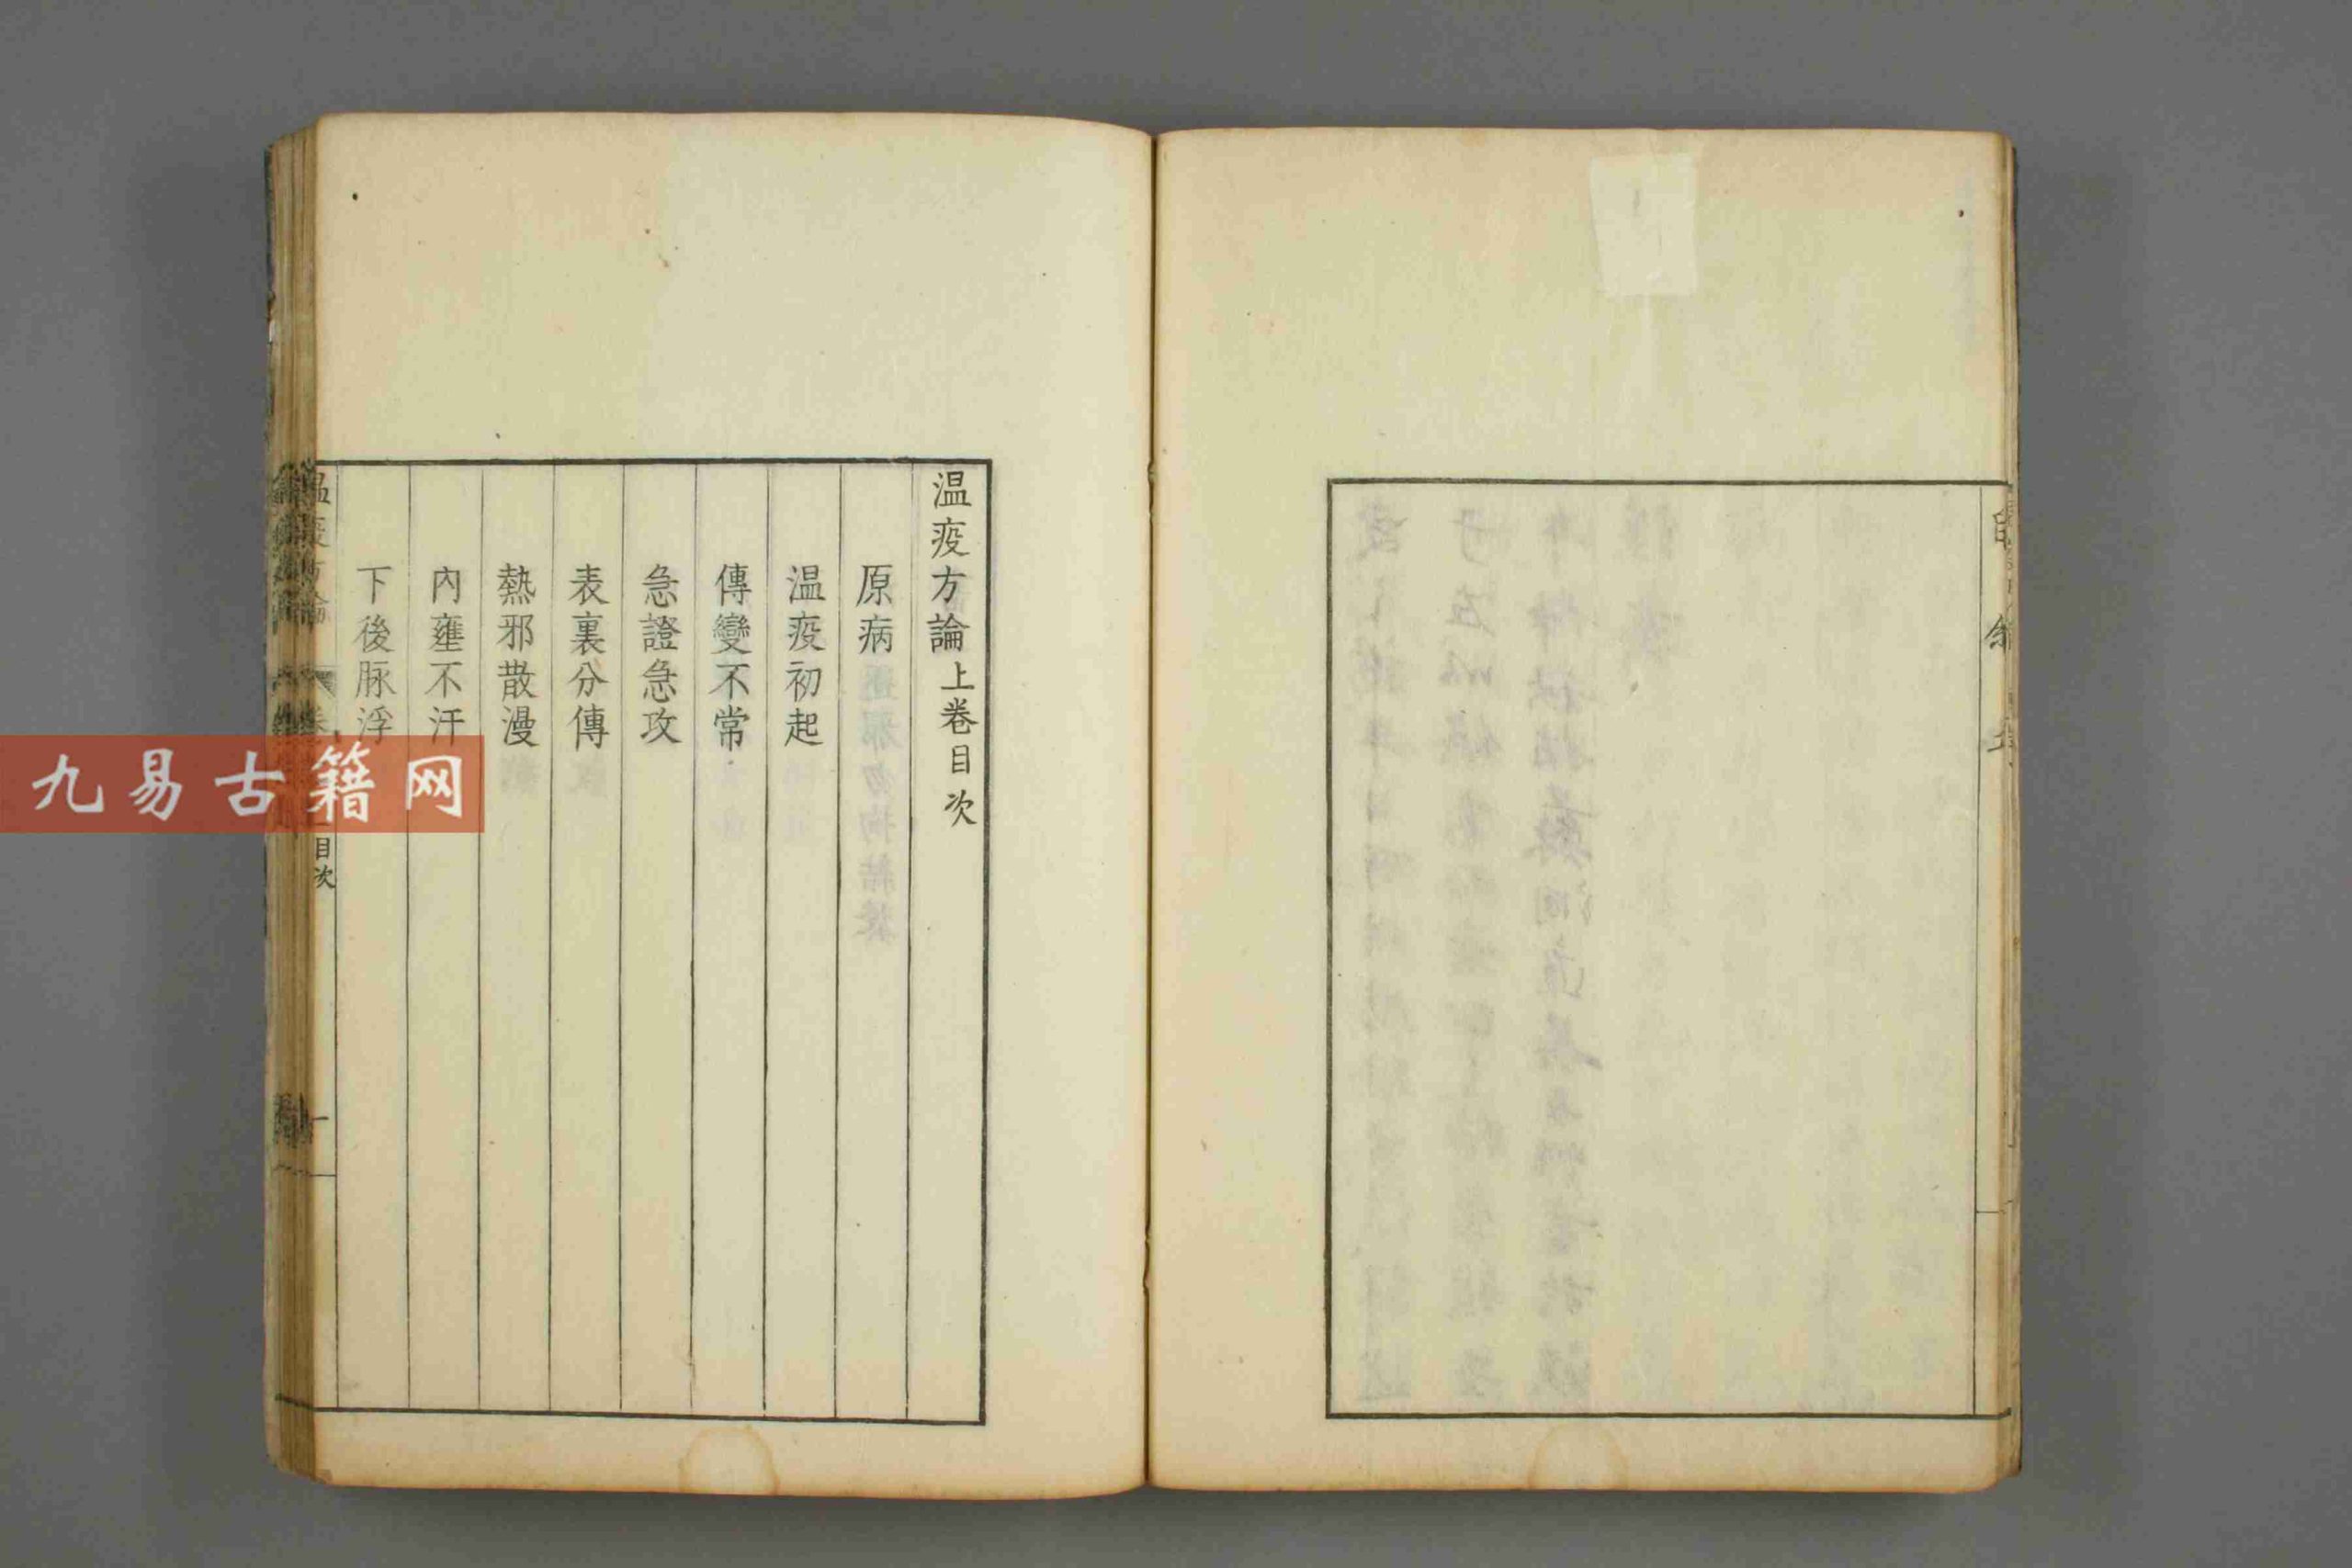 温疫方論上卷目次
原病
温疫初起
傳變不常
急證急攻
表裏分傳
熱邪散漫
內壅不汗
下後脉浮
温疫方論
目次
一
九易古籍网